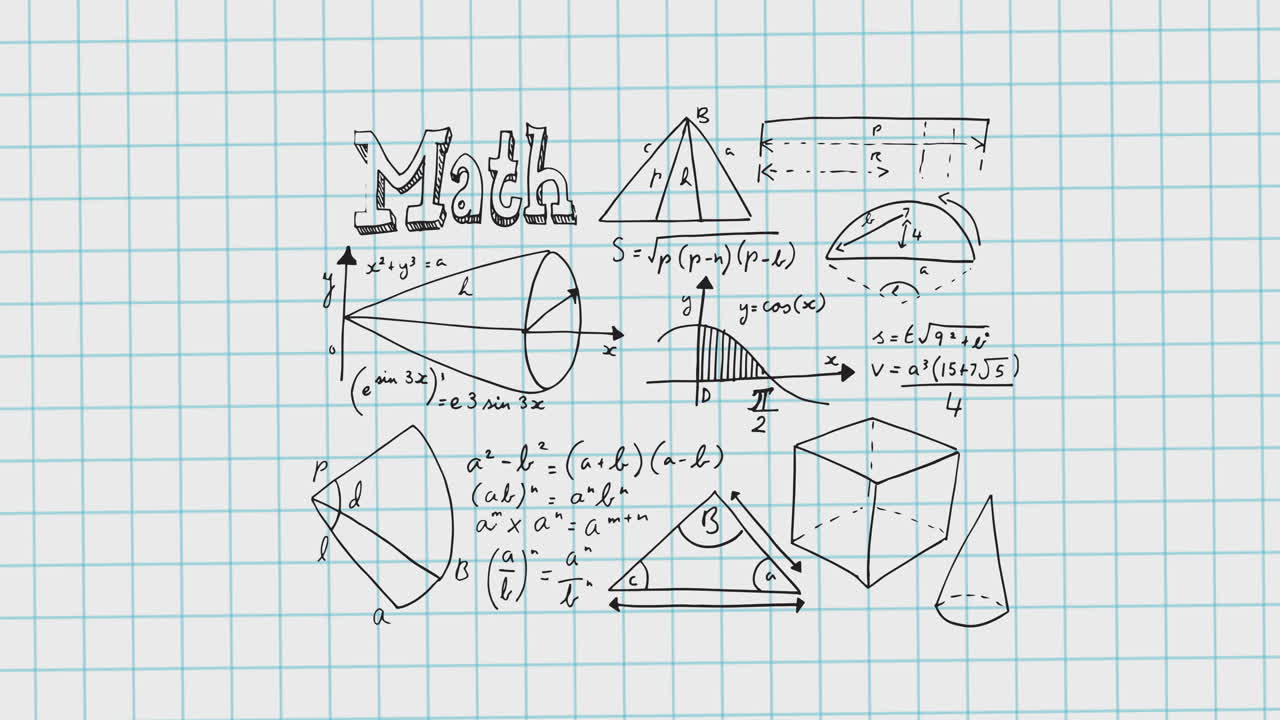 Math
B
c a
p h
P
R
S = √p(p-n)(p-b)
b 4
a
y x² + y³ = a
h
o x
(e sin 3x)' = e 3 sin 3x
y y = cos(x)
x
π/2
V = a³(15+7√5)/4
P
d
l
B
a
a² - b² = (a+b)(a-b)
(ab)ⁿ = aⁿbⁿ
aᵐ x aⁿ = aᵐ⁺ⁿ
(a/b)ⁿ = aⁿ/bⁿ
B
c a